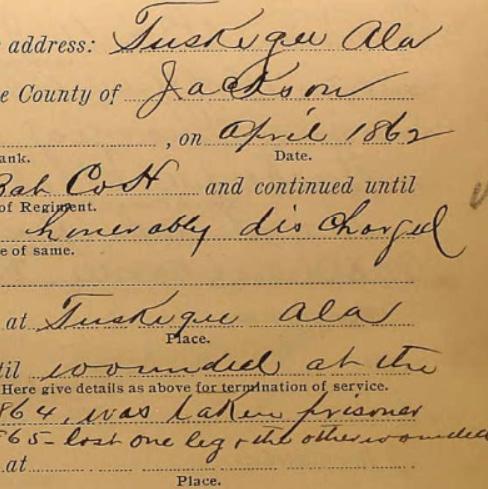 address: Tuskegee Ala
e County of Jackson
, on April 1862
ank. Date.
Bat Co H and continued until
of Regiment.
honorably discharged
e of same.
at Tuskegee Ala
Place.
til wounded at the
Here give details as above for termination of service.
864, was taken prisoner
865 - lost one leg & the other wounded
at
Place.